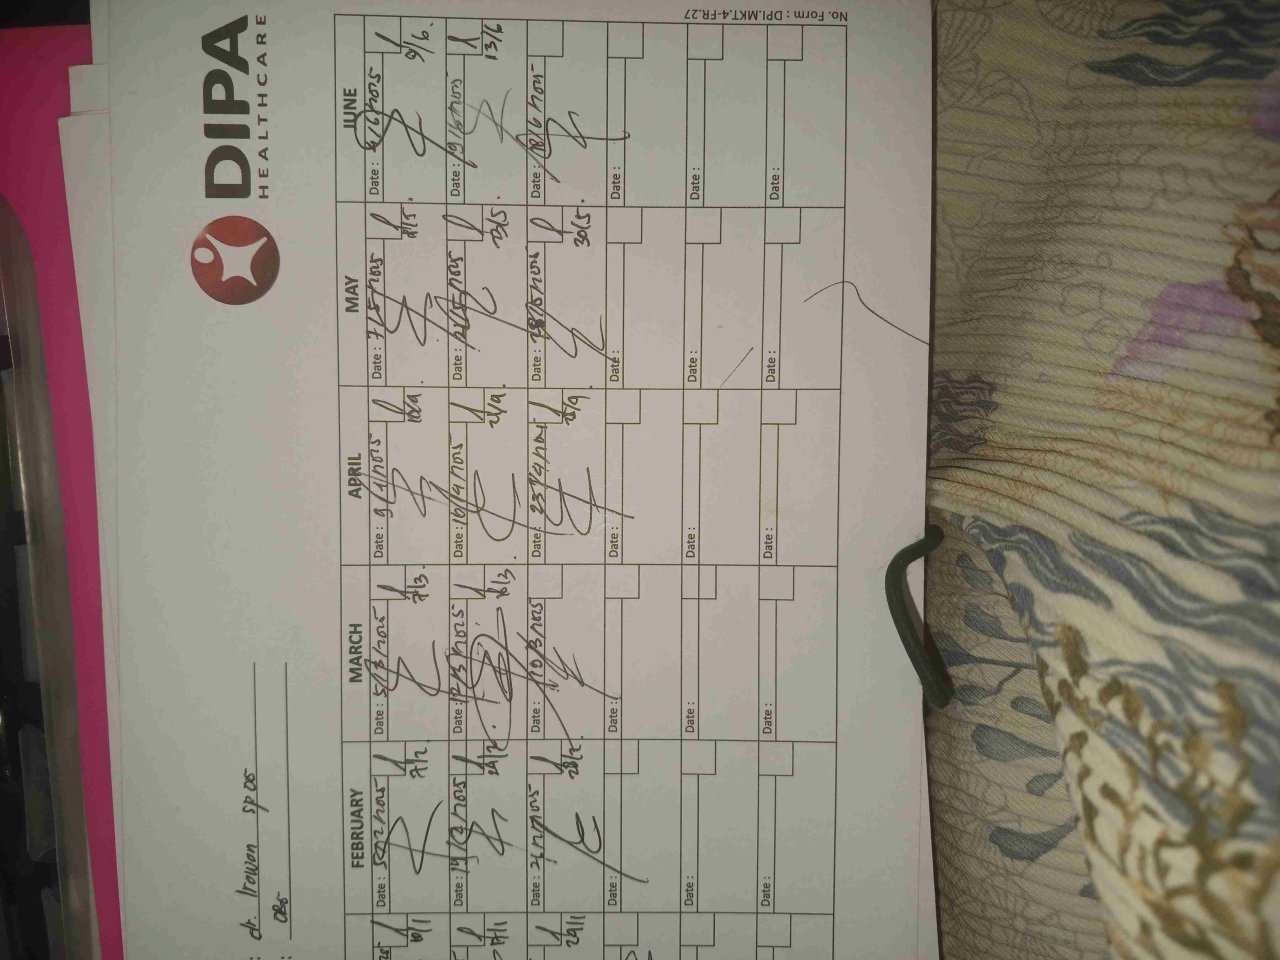 DIPA
HEALTHCARE
: dr. Irawan sp OG
:
FEBRUARY MARCH APRIL MAY JUNE
Date : 5/2/2025 Date : 5/3/2025 Date : 9/4/2025 Date : 7/5/2025 Date : 4/6/2025
10/1 7/2 7/3 9/6
Date : 19/2/2025 Date : 12/3/2025 Date : 16/4/2025 Date : 21/5/2025 Date :
17/1 23/5 13/6
Date : 26/2/2025 Date : Date : 23/4/2025 Date : 28/5/2025 Date : 18/6/2025
24/1 28/2 30/5
Date : Date : Date : Date :
Date : Date : Date : Date : Date :
Date : Date : Date : Date : Date :
No. Form : DPI.MKT.4-FR.27